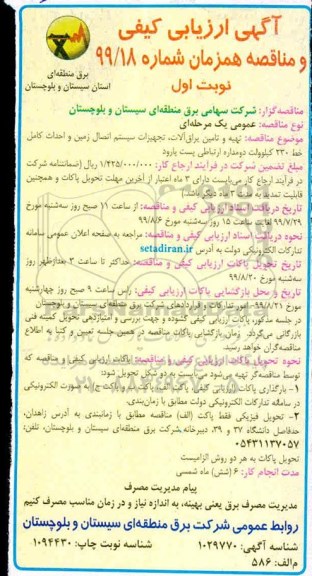 آگهی ارزیابی کیفی
و مناقصه همزمان شماره ۹۹/۱۸
نوبت اول
برق منطقه‌ای
استان سیستان و بلوچستان
مناقصه‌گزار: شرکت سهامی برق منطقه‌ای سیستان و بلوچستان
نوع مناقصه: عمومی یک مرحله‌ای
موضوع مناقصه: تهیه و تامین یراق‌آلات، تجهیزات سیستم اتصال زمین و احداث کامل
خط ۲۳۰ کیلوولت دومداره ارتباطی پست یارود
مبلغ تضمین شرکت در فرآیند ارجاع کار: ۱/۴۲۵/۰۰۰/۰۰۰ ریال (ضمانتنامه شرکت
در فرآیند ارجاع کار می‌بایست دارای ۳ ماه اعتبار از آخرین مهلت تحویل پاکات و همچنین
قابلیت تمدید
تاریخ دریافت اسناد ارزیابی کیفی و مناقصه: از ساعت ۱۱ صبح روز سه‌شنبه مورخ
۹۹/۷/۲۹ لغایت ساعت ۱۵ روز سه‌شنبه مورخ ۹۹/۸/۶
نحوه دریافت اسناد ارزیابی کیفی و مناقصه: مراجعه به صفحه اعلان عمومی سامانه
تدارکات الکترونیکی دولت به آدرس setadiran.ir
تاریخ تحویل پاکات ارزیابی کیفی و مناقصه: حداکثر تا ساعت ۲ بعدازظهر روز
سه‌شنبه مورخ ۹۹/۸/۲۰
تاریخ و محل بازگشایی پاکات ارزیابی کیفی: راس ساعت ۹ صبح روز چهارشنبه
مورخ ۹۹/۸/۲۱ - امور تدارکات و قراردادهای شرکت برق منطقه‌ای سیستان و بلوچستان
در جلسه مذکور، پاکات ارزیابی کیفی گشوده و جهت بررسی و امتیازدهی تحویل کمیته فنی
بازرگانی می‌گردد. زمان بازگشایی پاکات مناقصه در همین جلسه تعیین و کتبا به اطلاع
مناقصه‌گران خواهد رسید.
نحوه تحویل پاکات ارزیابی کیفی و مناقصه: پاکات ارزیابی کیفی و مناقصه که
توسط مناقصه‌گر تهیه می‌شود می‌بایست به دو شکل تحویل شود:
۱- بارگذاری پاکات ارزیابی کیفی و مناقصه به صورت الکترونیکی
در سامانه تدارکات الکترونیکی دولت مطابق با زمان‌بندی.
۲- تحویل فیزیکی فقط پاکت (الف) مناقصه مطابق با زمانبندی به آدرس زاهدان،
حدفاصل دانشگاه ۳۷ و ۳۹، دبیرخانه شرکت برق منطقه‌ای سیستان و بلوچستان، تلفن:
۰۵۴۳۱۱۳۷۰۵۷
تحویل پاکات به هر دو روش الزامیست
مدت انجام کار: ۶ (شش) ماه شمسی
پیام مدیریت مصرف
مدیریت مصرف برق یعنی بهینه، به اندازه نیاز و در زمان مناسب مصرف کنیم
روابط عمومی شرکت برق منطقه‌ای سیستان و بلوچستان
شناسه آگهی: ۱۰۲۹۷۷۰ شناسه نوبت چاپ: ۱۰۹۴۴۳۰
م‌الف: ۵۸۶